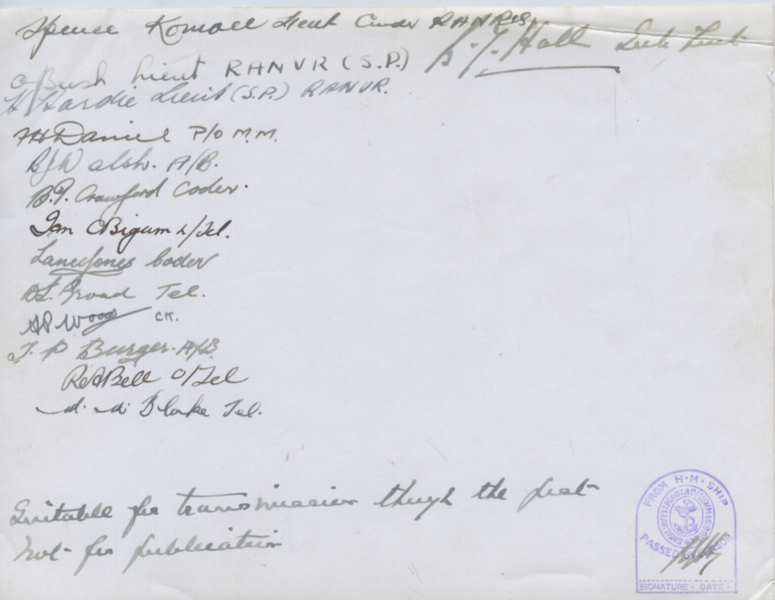 Spence Komoll Lieut Cmdr RANR(S)
B. J. Hall Sub Lieut
C Bush Lieut RANVR (S.P.)
H Hardie Lieut (S.P.) RANVR.
Daniel P/O M.M.
B J Walsh. A/B.
B.P. Crawford Coder.
Ian C Bigum L/Tel.
Lance Jones Coder
Tel.
Wood CK.
J. P Burger. A/B.
R Bell O/Tel
Blake Tel.
Suitable for transmission though the post
Not for publication
FROM H·M·SHIP
PASSED BY CENSOR
SIGNATURE · DATE ·